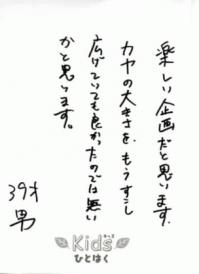 楽しい企画だと思います。
カヤの大きさを、もうすこし
広げていても良かったのでは無い
かと思います。
39才
男
Kids
ひとはく